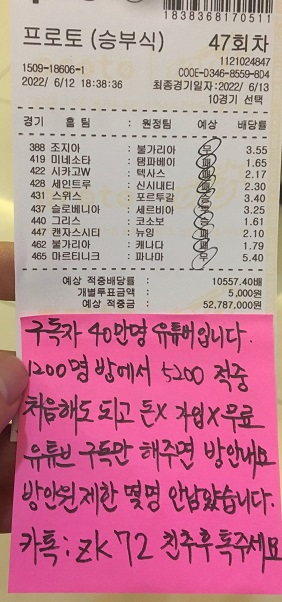 1838368170511
프로토 (승부식) 47회차
1121024847
1509-18606-1 CODE-D346-8559-8D4
2022/ 6/12 18:38:36 최종경기일자:2022/ 6/13
10경기 선택
경기 홈 팀 : 원정팀 예상 배당률
388 조지아 : 불가리아 무 3.55
419 미네소타 : 탬파베이 패 1.65
422 시카고W : 텍사스 패 2.17
428 세인트루 : 신시내티 패 2.30
431 스위스 : 포르투갈 승 3.40
437 슬로베니아 : 세르비아 무 3.25
440 그리스 : 코소보 승 1.61
447 캔자스시티 : 볼티 패 2.10
462 불가리아 : 캐나다 패 1.79
465 마르티니크 : 파나마 무 5.40
예상 적중배당률 : 10557.40배
개별투표금액 : 5,000원
예상 적중금 : 52,787,000원
구독자 40만명 유튜버입니다.
1200명 방에서 5200 적중
처음해도 되고 돈X 가입X 무료
유튜브 구독만 해주면 방안내요
방인원제한 몇명 안남았습니다.
카톡: ZK72 친추후톡주세요